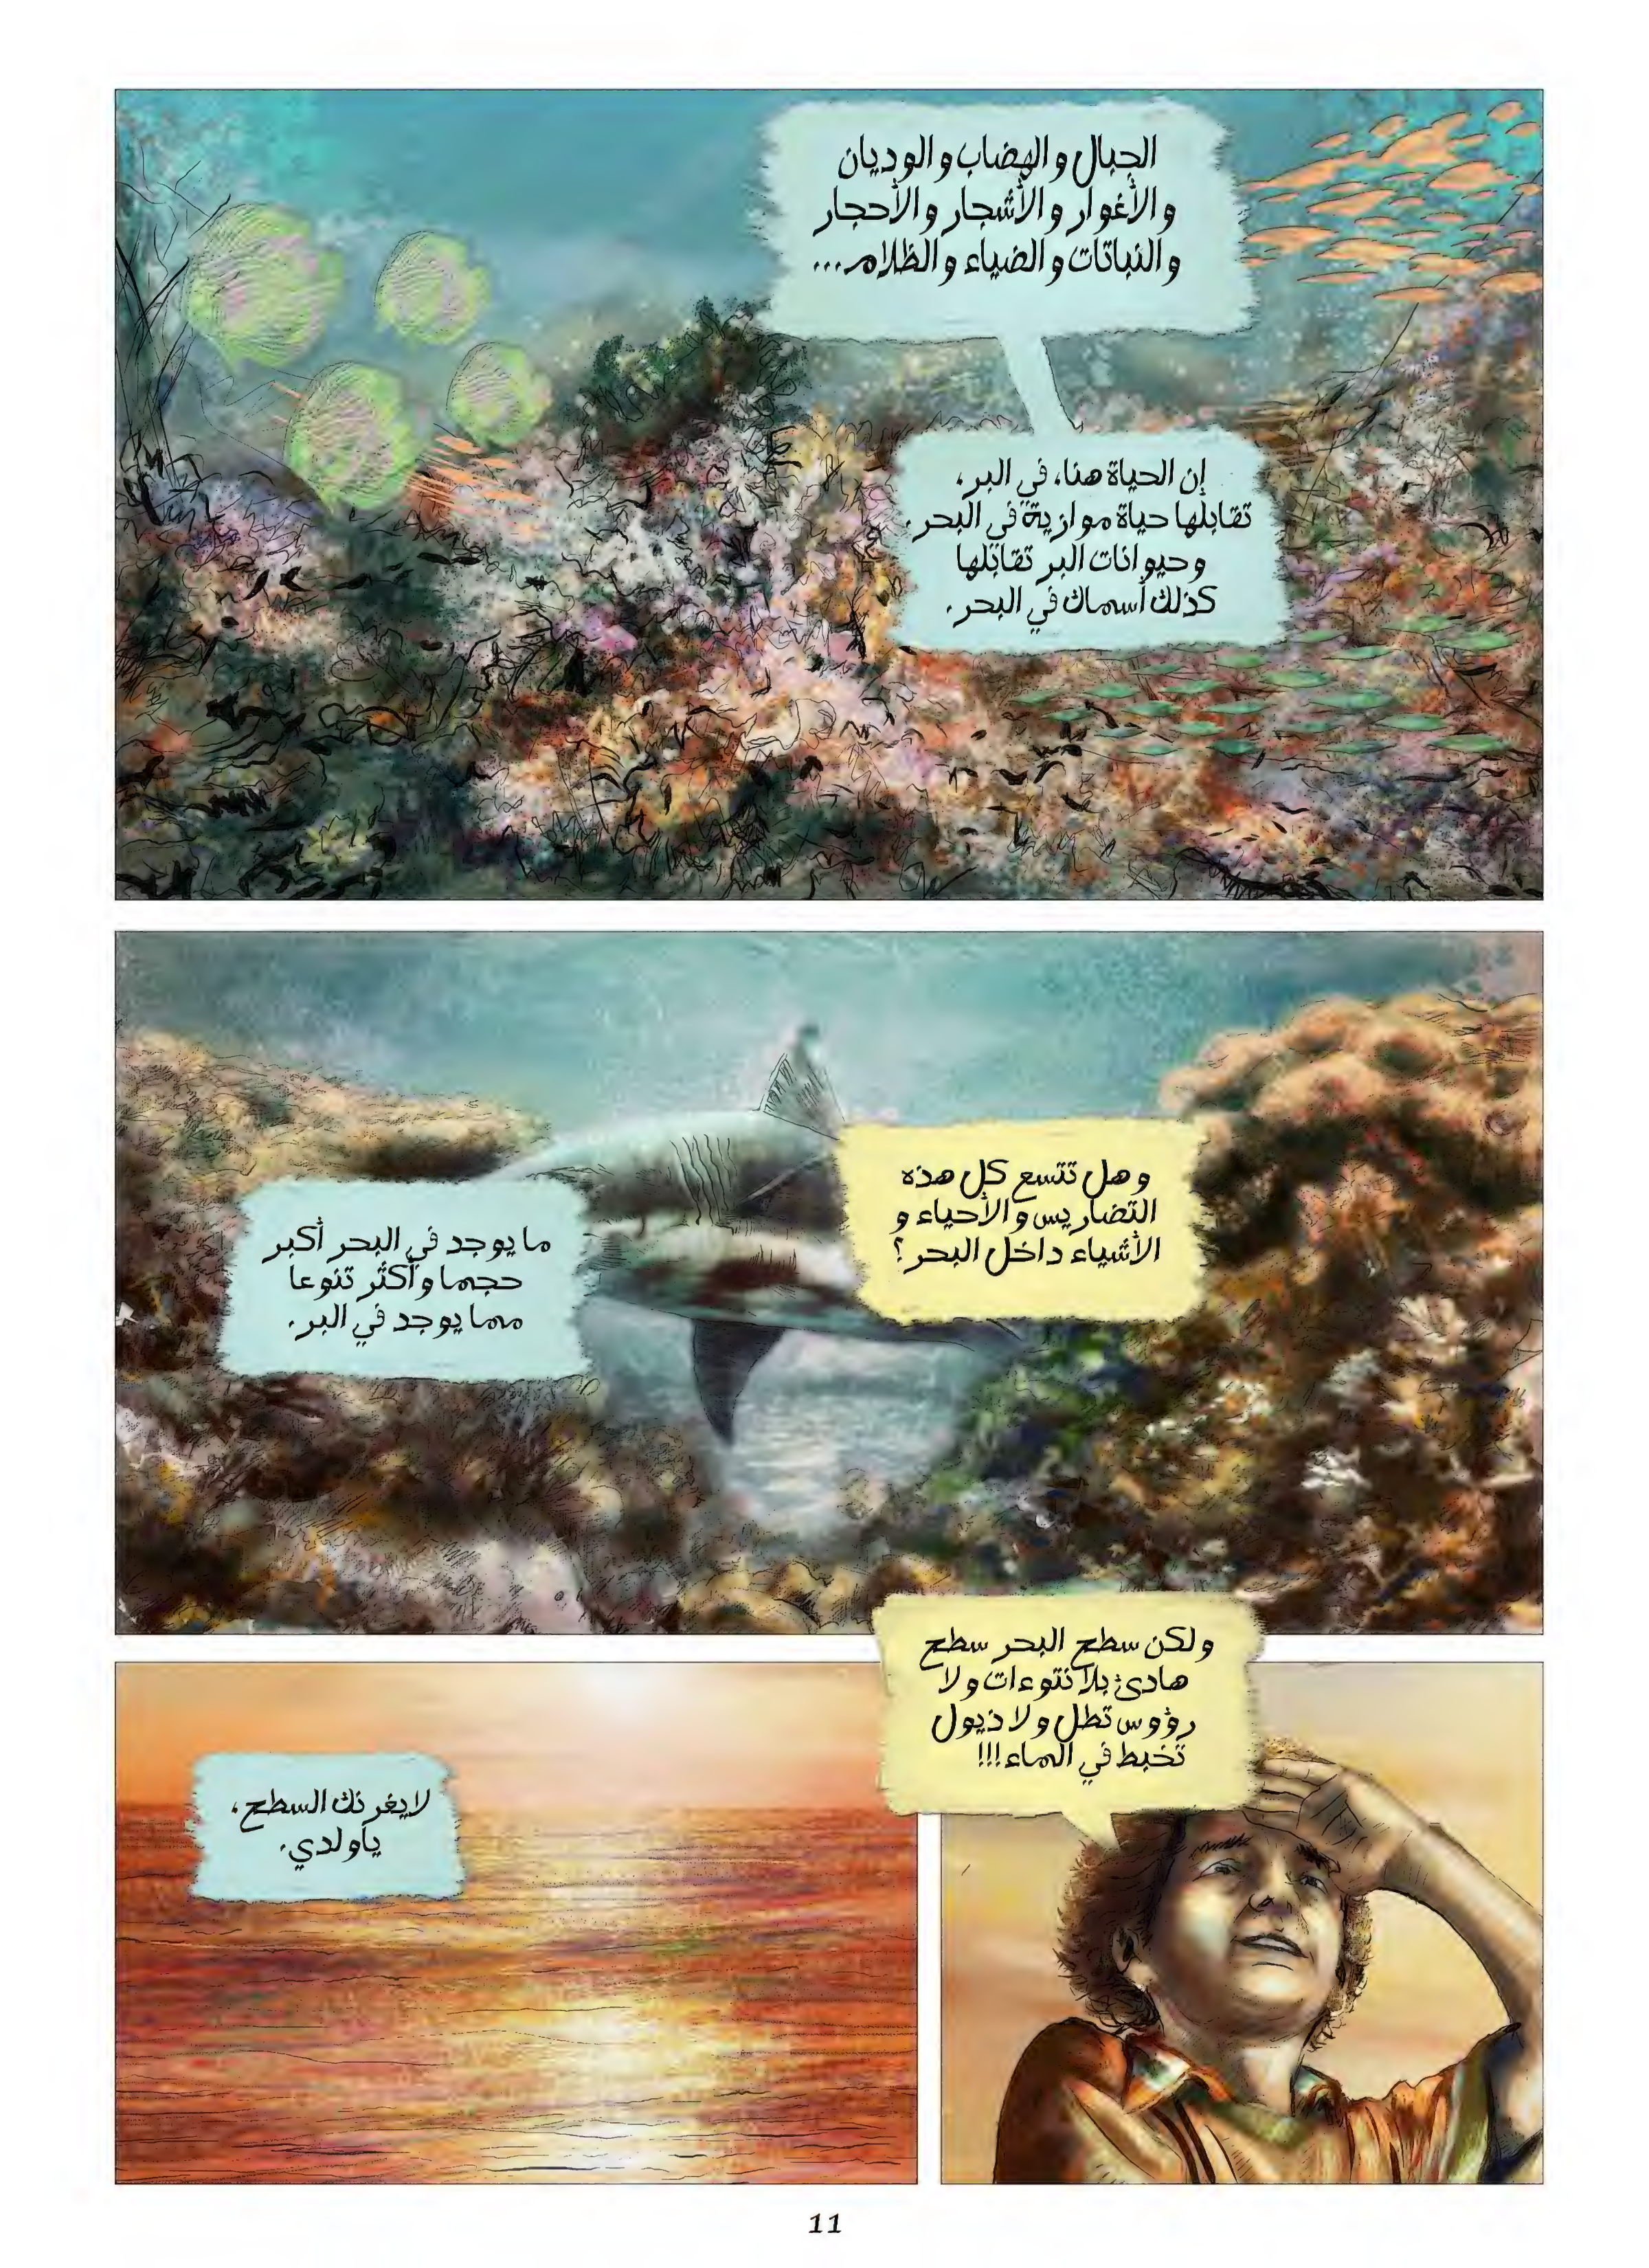 الجبال والهضاب والوديان
والأغوار والأشجار والأحجار
والنباتات والضياء والظلام...
إن الحياة هنا، في البر،
تقابلها حياة موازية في البحر.
وحيوانات البر تقابلها
كذلك أسماك في البحر.
وهل تتسع كل هذه
التضاريس والأحياء و
الأشياء داخل البحر؟
ما يوجد في البحر أكبر
حجما وأكثر تنوعا
مما يوجد في البر.
ولكن سطح البحر سطح
هادئ بلا نتوءات ولا
رؤوس تطل ولا ذيول
تخبط في الماء!!!
لا يغرنك السطح،
يا ولدي.
11